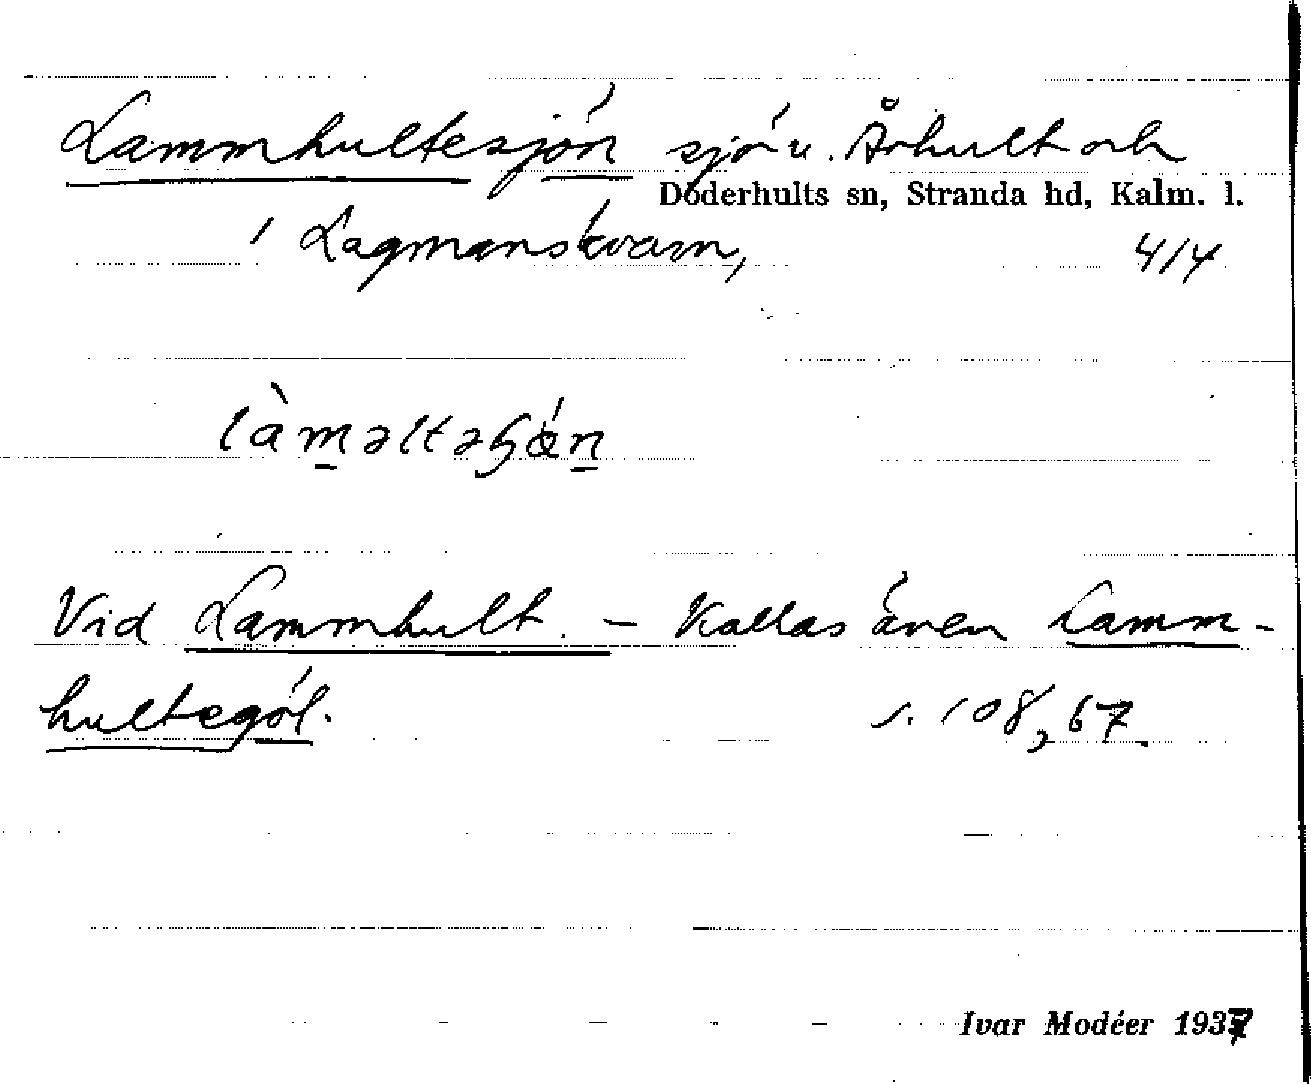 Lammhultesjön sjö u. Århult och
Döderhults sn, Stranda hd, Kalm. l.
/ Lagmanskvarn, 4/4
làm̲əltəɧǿn̲
Vid Lammhult. – Kallas även Lamm-
hultegöl. s. 108, 67
Ivar Modéer 1937